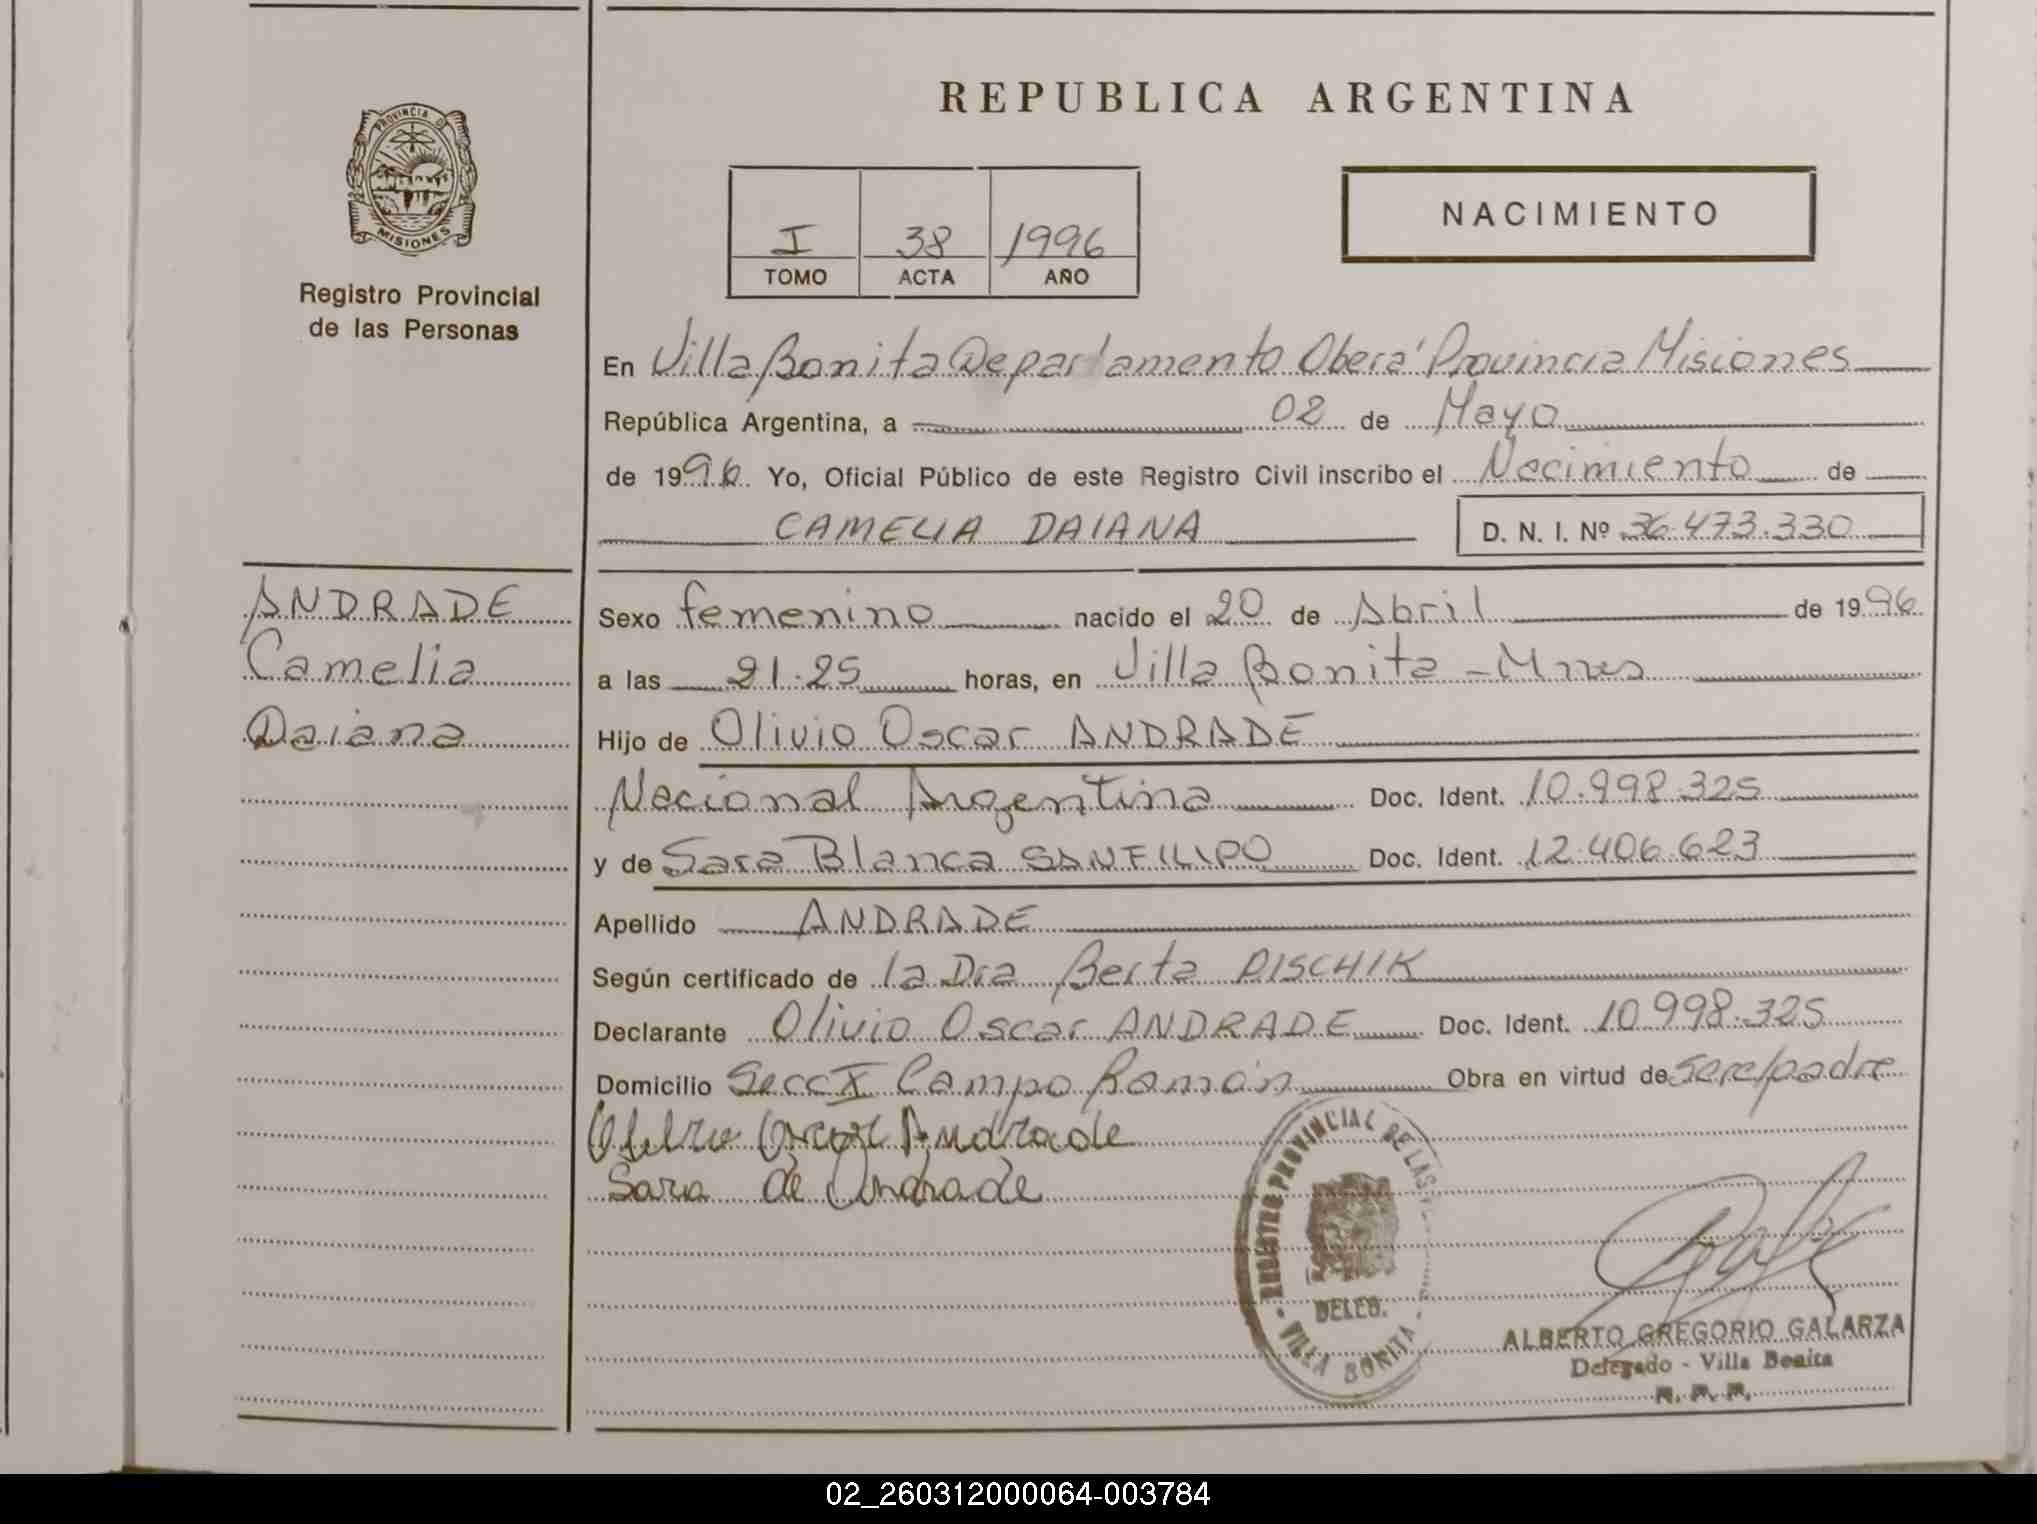 REPUBLICA ARGENTINA
PROVINCIA D
MISIONES
Registro Provincial
de las Personas
I 38 1996
TOMO ACTA AÑO
NACIMIENTO
En Villa Bonita Departamento Oberá Provincia Misiones
República Argentina, a 02 de Mayo
de 1996. Yo, Oficial Público de este Registro Civil inscribo el Nacimiento de
CAMELIA DAIANA D. N. I. Nº 36.473.330
ANDRADE
Camelia
Daiana
Sexo femenino nacido el 20 de Abril de 1996
a las 21.25 horas, en Villa Bonita - Mnes
Hijo de Olivio Oscar ANDRADE
Nacional Argentina Doc. Ident. 10.998.325
y de Sara Blanca SANFILIPO Doc. Ident. 12.406.623
Apellido ANDRADE
Según certificado de la Dra Berta PISCHIK
Declarante Olivio Oscar ANDRADE Doc. Ident. 10.998.325
Domicilio Secc X Campo Ramón Obra en virtud de ser el padre
Oscar Andrade
Sara de Andrade
REGISTRO PROVINCIAL DE LAS
DELEG.
- VILLA BONITA -
ALBERTO GREGORIO GALARZA
Delegado - Villa Bonita
R. P. P.
02_260312000064-003784